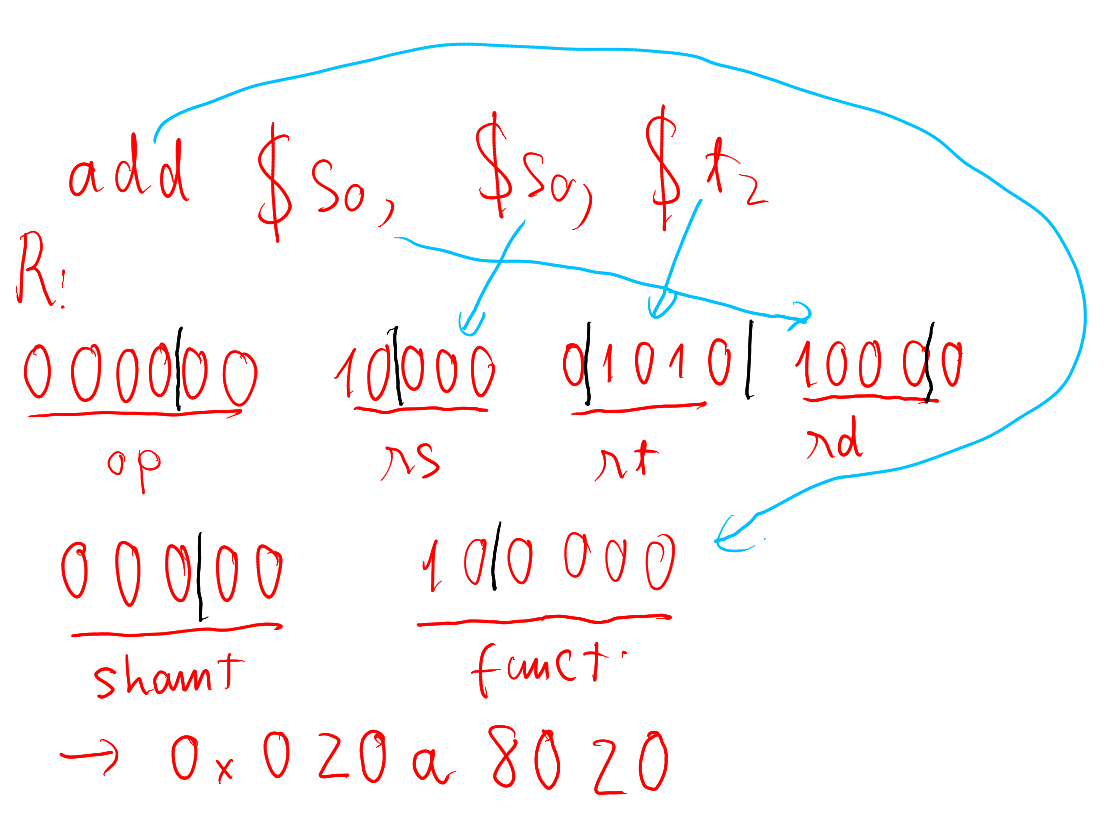 add $s0, $s0, $t2
R:
000000 10000 01010 10000
op rs rt rd
00000 100000
shamt funct
→ 0x020a8020